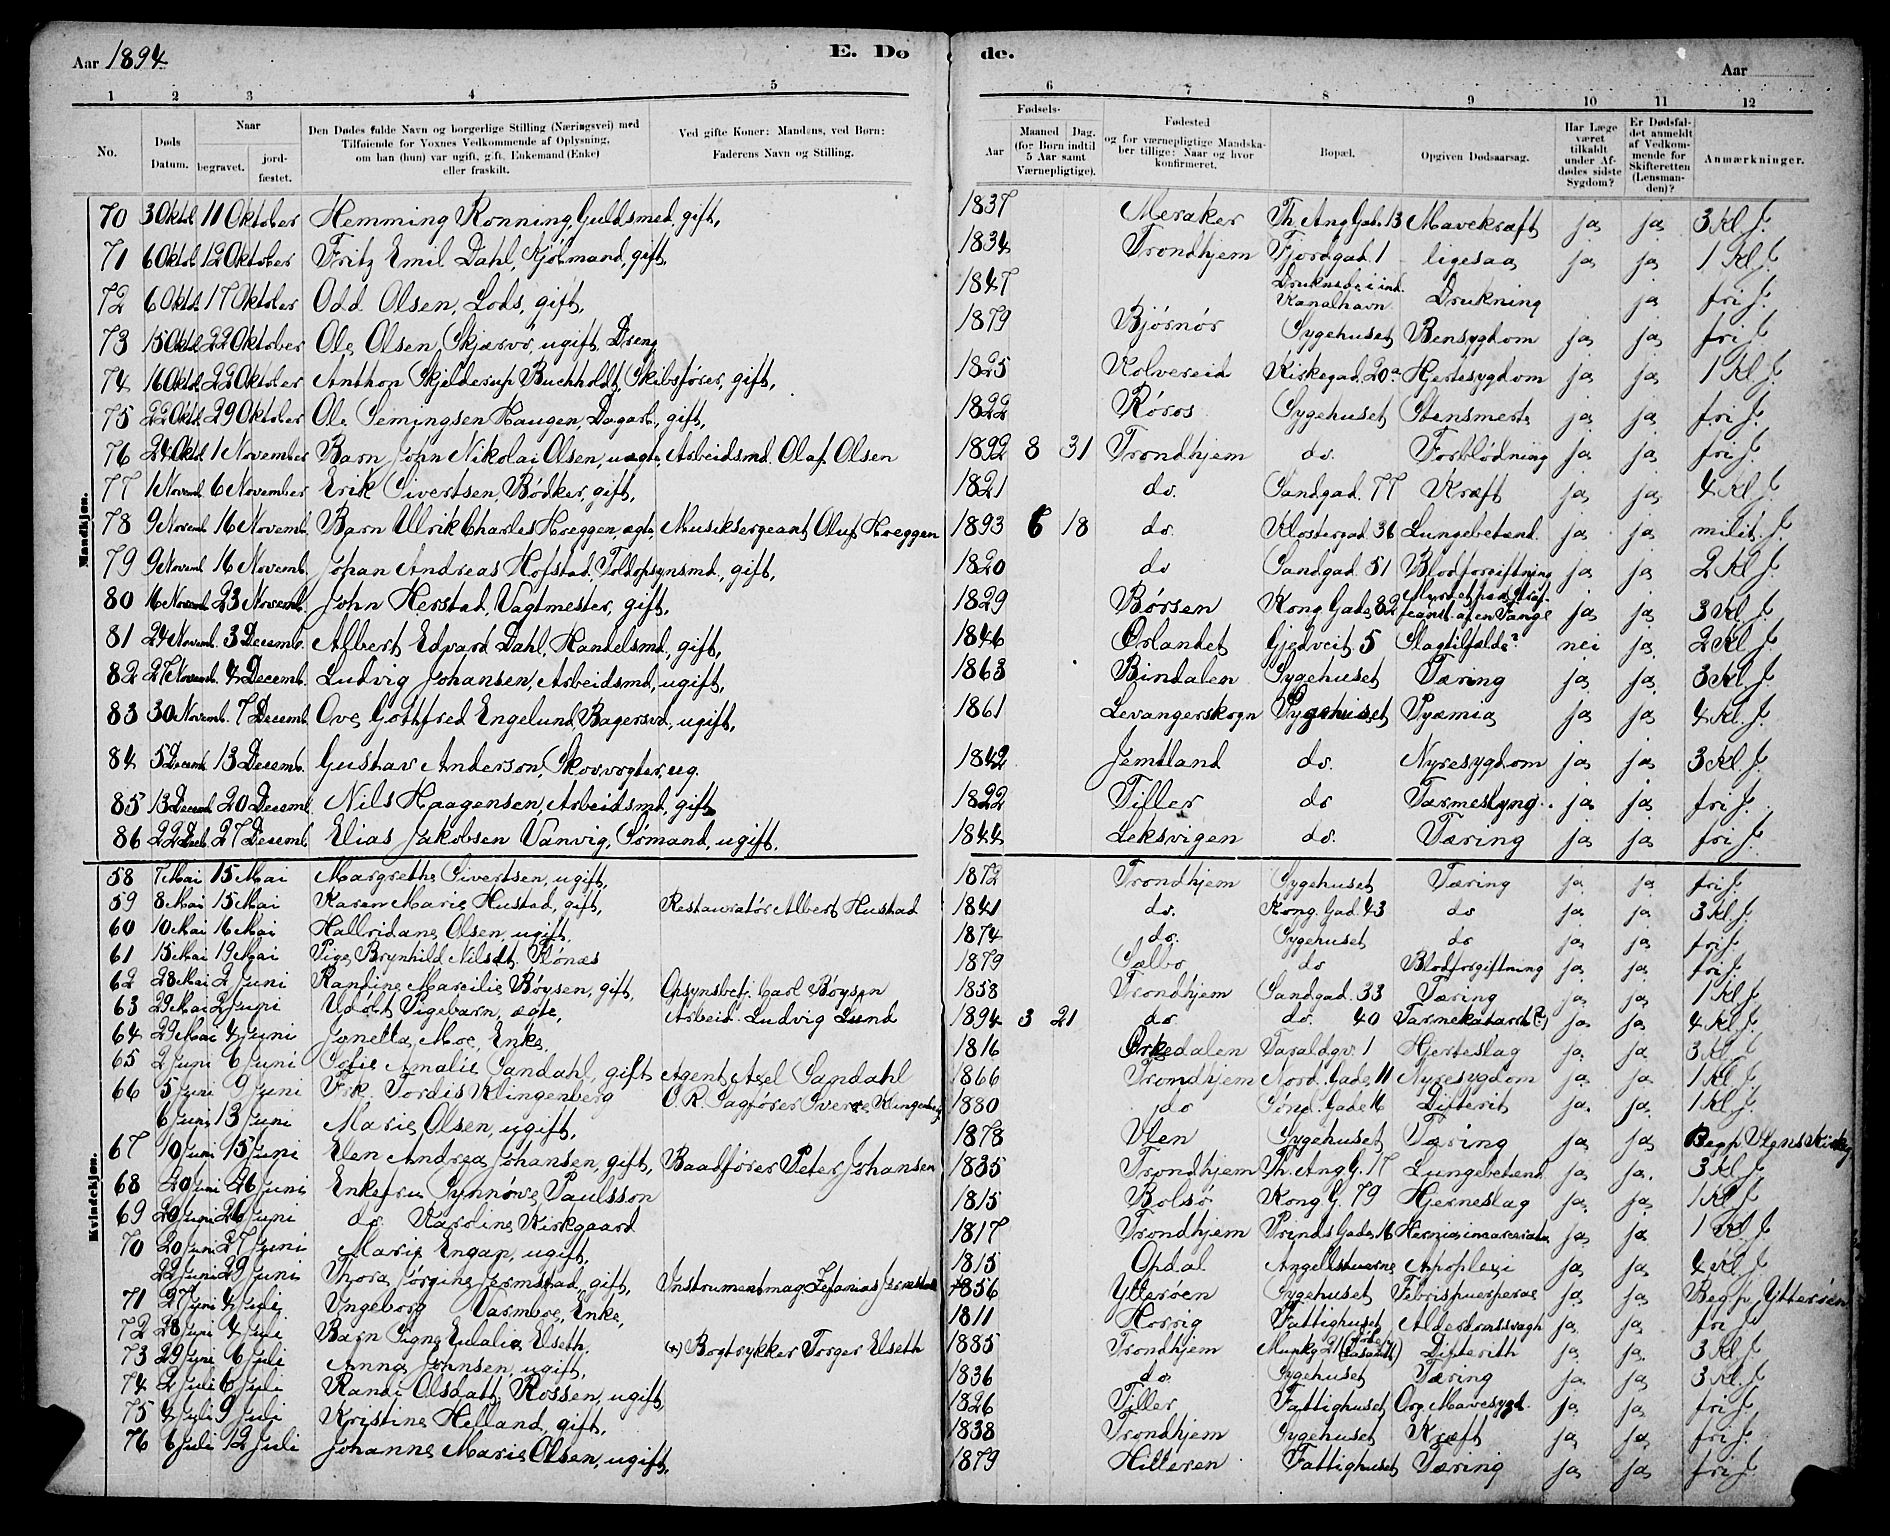 Aar 1894 E. Dø de. Aar
1 2 3 4 5 6 7 8 9 10 11 12
No. Døds Datum. Naar begravet. jordfæstet. Den Dødes fulde Navn og borgerlige Stilling (Næringsvei) med Tilføiende for Voxnes Vedkommende af Oplysning, om han (hun) var ugift, gift, Enkemand (Enke) eller fraskilt. Ved gifte Koner: Mandens, ved Børn: Faderens Navn og Stilling. Fødsels- Aar Maaned (for Børn indtil 5 Aar samt Værnepligtige). Dag. Fødested og for værnepligtige Mandskaber tillige: Naar og hvor konfirmeret. Bopæl. Opgiven Dødsaarsag. Har Læge været tilkaldt under Afdødes sidste Sygdom? Er Dødsfaldet anmeldt af Vedkommende for Skifteretten (Lensmanden)? Anmærkninger.
Mandkjøn.
70 3 Oktb 11 Oktober Hemming Rønning, Guldsmed, gift, 1837 Meraker Th. Ang. Gad. 13 Mavekræft ja ja 3 Kl. J.
71 6 Oktob 12 Oktober Fritz Emil Dahl, Kjøbmand, gift, 1834 Trondhjem Fjordgad. 1 ligesaa ja ja 1 Kl. J.
72 6 Oktb 17 Oktober Odd Olsen, Lods, gift, 1847 Druknede i ind. Kanalhavn Drukning ja fri J.
73 15 Oktb 22 Oktober Ole Olsen Skjærvø, ugift Dreng 1879 Bjørnør Sygehuset Bensygdom ja ja fri J.
74 16 Oktb 22 Oktober Anthon Skjelderup Buchholdt, Skibsfører, gift, 1825 Kolvereid Kirkegad. 20a Hjertesygdom ja ja 1 Kl. J.
75 22 Oktb 29 Oktober Ole Semingsen Haugen, Dagarb., gift, 1822 Røros Sygehuset Stensmerte ja ja fri J.
76 24 Oktb 1 November Barn John Nikolai Olsen, uægte, Arbeidsmd. Olaf Olsen 1892 8 31 Trondhjem do. Forblødning ja ja fri J.
77 1 Novemb 6 November Erik Sivertsen, Bødker, gift, 1821 do. Sandgad. 77 Kræft ja ja 4 Kl. J.
78 9 Novemb 16 Novemb. Barn Ulrik Charles Hoeggen, ægte, Musiksergeant Oluf Hoeggen 1893 6 18 do. Klostergad. 36 Lungebetænd. ja ja milit. J.
79 9 Novemb 16 Novemb. Johan Andreas Hofstad, Toldopsynsmd., gift, 1820 do Sandgad. 51 Blodforgiftning ja ja 2 Kl. J.
80 16 Novemb 23 Novemb. John Herstad, Vagtmester, gift, 1829 Børsen Kong. Gade 82 Myrdet paa Straf- anst. af en Fange ja ja 3 Kl. J.
81 24 Novemb. 3 Decemb. Albert Edvard Dahl, Handelsmd., gift, 1846 Ørlandet Gjedveit. 5 Slagtilfælde? nei ja 2 Kl. J.
82 27 Novemb. 4 Decemb. Ludvig Johansen, Arbeidsmd., ugift, 1863 Bindalen Sygehuset Tæring ja ja 3 Kl. J.
83 30 Novemb. 7 Decemb. Ove Gothfred Engelund, Bagersvd, ugift, 1861 Levangerskogn Sygehuset Pyæmia ja ja 4 Kl. J.
84 5 Decemb 13 Decemb. Gustav Anderson, Skovvogter, ug. 1842 Jemtland do. Nyresygdom ja ja 3 Kl. J.
85 13 Decemb 20 Decemb. Nils Haagensen, Arbeidsmd, gift 1822 Tiller do Tarmeslyng. ja ja fri J.
86 22 Decb 27 Decemb. Elias Jakobsen Vanvig, Sømand, ugift, 1844 Leksvigen do. Tæring ja ja fri J.
Kvindekjøn.
58 7 Mai 15 Mai Margrethe Sivertsen, ugift, 1872 Trondhjem Sygehuset Tæring ja ja fri J.
59 8 Mai 15 Mai Karen Marie Hustad, gift, Restauratør Albert Hustad 1841 do. Kong. Gad. 43 do ja ja 3 Kl. J.
60 10 Mai 16 Mai Hallridane Olsen, ugift, 1874 do. Sygehuset do ja ja fri J.
61 15 Mai 19 Mai Pige Brynhild Nilsdt. Flønæs 1879 Sælbo do Blodforgiftning ja ja fri J.
62 28 Mai 2 Juni Randine Marcilie Bøysen, gift, Opsynsbetj. Carl Bøysen 1858 Trondhjem Sandgad. 33 Tæring ja ja 1 Kl. J.
63 29 Mai 2 Juni Udøbt Pigebarn, ægte, Arbeid. Ludvig Lund 1894 3 21 do. do. 40 Tarmekatarrh (?) ja ja 4 Kl. J.
64 29 Mai 4 Juni Jonetta Moe, Enke, 1816 Orkedalen Taraldgv. 1 Hjerteslag ja ja 3 Kl. J.
65 2 Juni 6 Juni Sofie Amalie Sandahl, gift Agent Axel Sandahl 1866 Trondhjem Nord. Gade 11 Nyresygdom ja ja 1 Kl. J.
66 5 Juni 9 Juni Frk. Tordis Klingenberg O. R. Sagfører Sverre Klingenberg 1880 do Sønd. Gade 16 Difterit ja ja 1 Kl. J.
6 Juni 13 Juni Marie Olsen, ugift, 1878 Ulen Sygehuset Tæring ja ja
67 10 Juni 15 Juni Elen Andrea Johansen, gift, Baadfører Peter Johansen 1835 Trondhjem Th. Ang. G. 17 Lungebetænd ja ja 3 Kl. J.
68 20 Juni 26 Juni Enkefru Synnøve Paulsson 1815 Bolsø Kong G. 79 Hjerneslag ja ja 1 Kl. J.
69 20 Juni 26 Juni do. Karoline Kirkgaard 1817 Trondhjem Prinds. Gade 16 Hernia incarcerata ja ja 1 Kl. J.
70 20 Juni 27 Juni Marie Engan, ugift, 1815 Opdal Angellstuerne Apoplexi ja ja 4 Kl. J.
22 Juni 29 Juni Thora Jørgine Jermstad, gift, Instrumentmag. Zefanias Jermstad 1856 Ytterøen Sygehuset Febris puerperae ja ja Begr. Ytterøen
71 27 Juni 4 Juli Ingeborg Varmboe, Enke, 1811 Horrig Fattighuset Alderdomssvagh ja ja fri J.
72 28 Juni 4 Juli Barn Signe Eulalia Elseth, (+) Bogtrykker Torger Elseth 1885 Trondhjem Munkg 21 Difterith ja ja 3 Kl. J.
73 29 Juni 6 Juli Anna Johnsen, ugift, 1836 do. Sygehuset Tæring ja ja 3 Kl. J.
74 2 Juli 6 Juli Randi Olsdatt. Rossen, ugift, 1826 Tiller Fattighuset Org. Mavesygd. ja ja fri J.
75 4 Juli 9 Juli Kristine Helland, gift, 1838 Trondhjem Sygehuset Kræft ja ja fri J.
76 6 Juli 12 Juli Johanne Marie Olsen, ugift, 1879 Hitteren Fattighuset Tæring ja ja fri J.